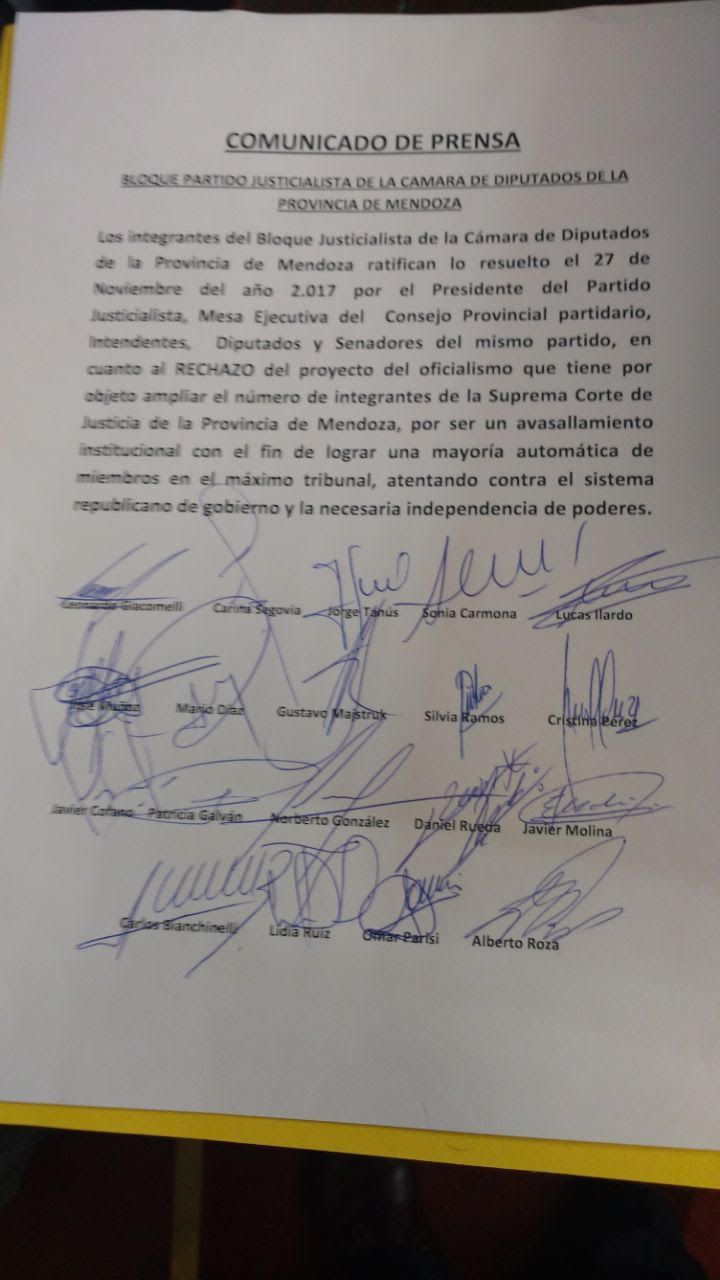 COMUNICADO DE PRENSA
BLOQUE PARTIDO JUSTICIALISTA DE LA CAMARA DE DIPUTADOS DE LA
PROVINCIA DE MENDOZA
Los integrantes del Bloque Justicialista de la Cámara de Diputados
de la Provincia de Mendoza ratifican lo resuelto el 27 de
Noviembre del año 2.017 por el Presidente del Partido
Justicialista, Mesa Ejecutiva del Consejo Provincial partidario,
Intendentes, Diputados y Senadores del mismo partido, en
cuanto al RECHAZO del proyecto del oficialismo que tiene por
objeto ampliar el número de integrantes de la Suprema Corte de
Justicia de la Provincia de Mendoza, por ser un avasallamiento
institucional con el fin de lograr una mayoría automática de
miembros en el máximo tribunal, atentando contra el sistema
republicano de gobierno y la necesaria independencia de poderes.
Leonardo Giacomelli Carina Segovia Jorge Tanús Sonia Carmona Lucas Ilardo
José Muñoz Mario Díaz Gustavo Majstruk Silvia Ramos Cristina Pérez
Javier Cofano Patricia Galván Norberto González Daniel Rueda Javier Molina
Carlos Bianchinelli Lidia Ruiz Omar Parisi Alberto Roza